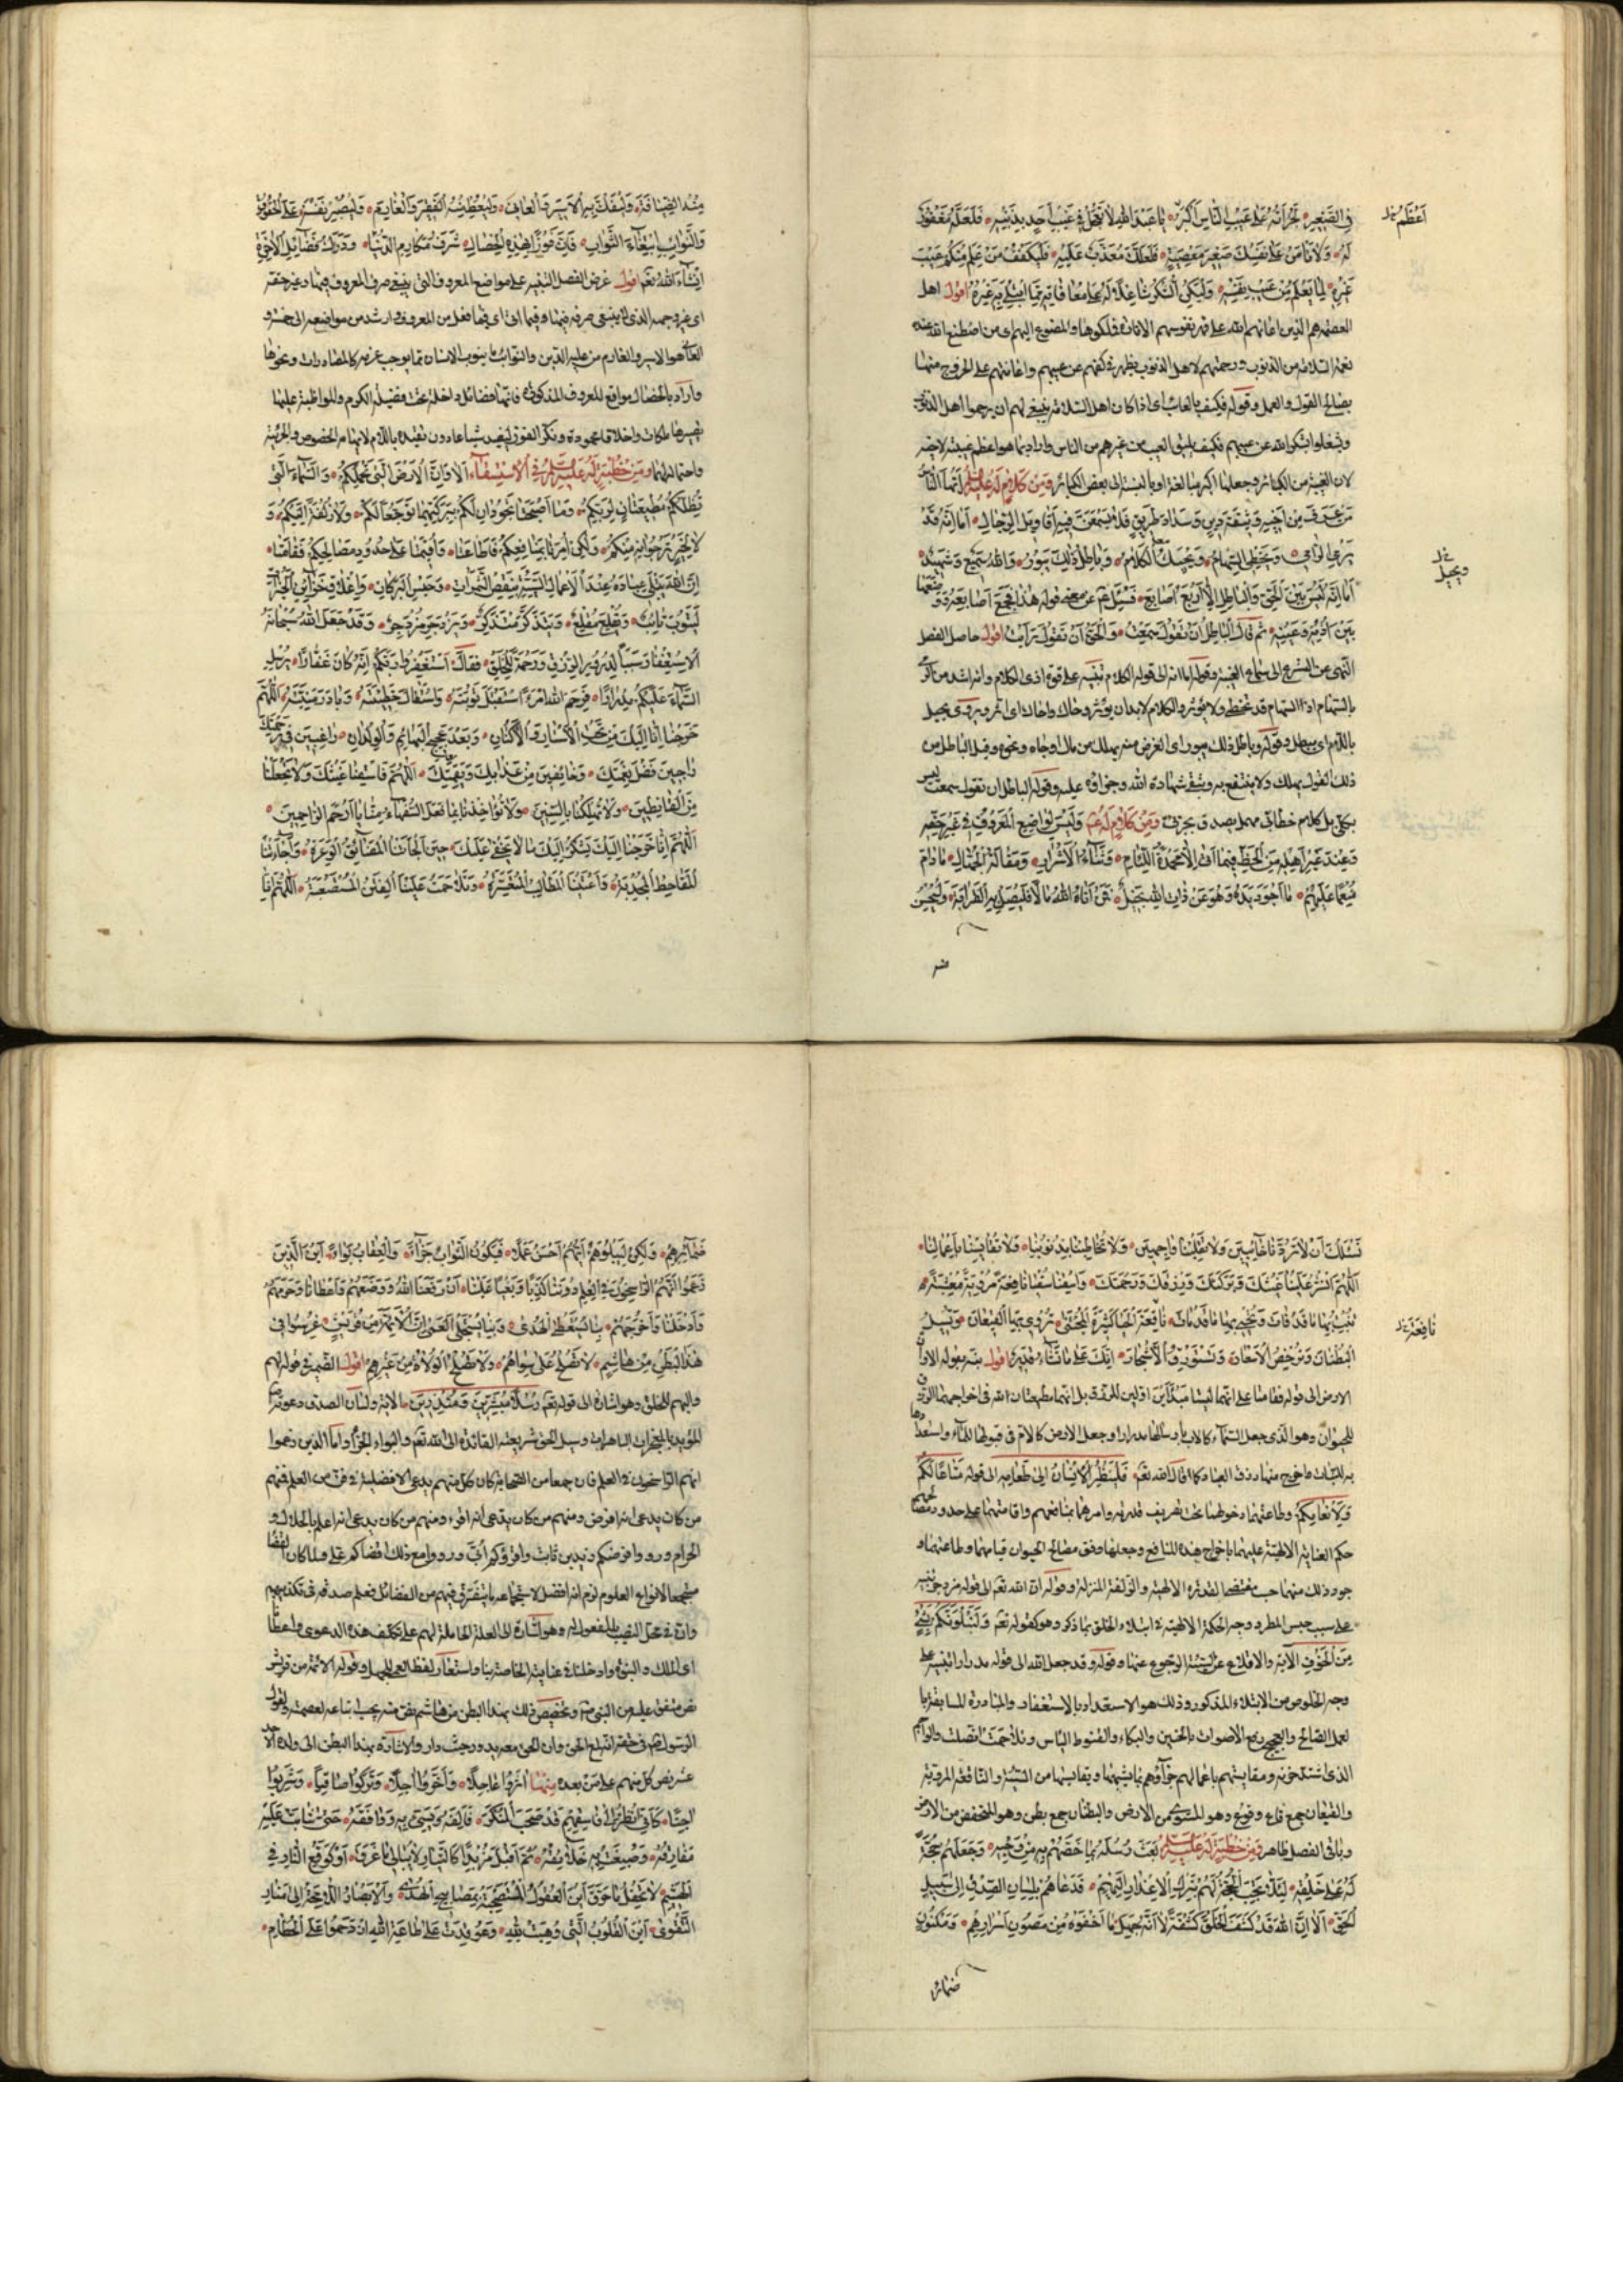 فِي الصَّغِيرِ لَجُرْأَتُهُ عَلَى عَيْبِ النَّاسِ أَكْبَرُ يَا عَبْدَ اللهِ لَا تَعْجَلْ فِي عَيْبِ أَحَدٍ بِذَنْبِهِ فَلَعَلَّهُ مَغْفُورٌ
لَهُ وَلَا تَأْمَنْ عَلَى نَفْسِكَ صَغِيرَ مَعْصِيَةٍ فَلَعَلَّكَ مُعَذَّبٌ عَلَيْهِ فَلْيَكْفُفْ مَنْ عَلِمَ مِنْكُمْ عَيْبَ
غَيْرِهِ لِمَا يَعْلَمُ مِنْ عَيْبِ نَفْسِهِ وَلْيَكُنِ الشُّكْرُ شَاغِلًا لَهُ عَلَى مُعَافَاتِهِ مِمَّا ابْتُلِيَ بِهِ غَيْرُهُ اقول اهل
العصمة هم الذين اعانهم الله على قهر نفوسهم الامارة فملكوها والمصنوع اليهم اى من اصطنع الله عنده
نعمة السلامة من الذنوب ورحمتهم لاهل الذنوب يظهر فى كفهم عن عيبهم واعانتهم على الخروج منها
بصالح القول والعمل وقوله فكيف بالعائب اى اذا كان اهل السلامة ينبغى لهم ان يرحموا اهل الذنوب
ويشغلوا بشكر الله عن عيبهم فكيف يليق العيب من غيرهم من الناس
لان الغيبة من الكبائر وجعلها اكبر مبالغة او بالنسبة الى بعض الكبائر وَمِنْ كَلَامٍ لَهُ عَلَيْهِ السَّلَامُ أَيُّهَا النَّاسُ
مَنْ عَرَفَ مِنْ أَخِيهِ وَثِيقَةَ دِينٍ وَسَدَادَ طَرِيقٍ فَلَا يَسْمَعَنَّ فِيهِ أَقَاوِيلَ الرِّجَالِ أَمَا إِنَّهُ قَدْ
يَرْمِي الرَّامِي وَيُخْطِئُ السِّهَامُ وَيُحِيكُ الْكَلَامُ وَبَاطِلُ ذَلِكَ يَبُورُ وَاللهُ سَمِيعٌ وَشَهِيدٌ
أَمَا إِنَّهُ لَيْسَ بَيْنَ الْحَقِّ وَالْبَاطِلِ إِلَّا أَرْبَعُ أَصَابِعَ فَسُئِلَ عَنْ مَعْنَى قَوْلِهِ هَذَا فَجَمَعَ أَصَابِعَهُ وَوَضَعَهَا
بَيْنَ أُذُنِهِ وَعَيْنِهِ ثُمَّ قَالَ الْبَاطِلُ أَنْ تَقُولَ سَمِعْتُ وَالْحَقُّ أَنْ تَقُولَ رَأَيْتُ اقول حاصل الفصل
النهى عن التسرع الى سماع الغيبة وقوله اما انه الى قوله الكلام تنبيه على قوة اذى الكلام وانه اشد من
بالسهام اذ السهام قد تخطى ولا تؤثر والكلام لا بد ان يؤثر وحاك واحاك اى اثر ويروى يحيل
باللام اى يبطل وقوله وباطل ذلك يبور اى الغرض منه يهلك من مال او جاه ونحوه
ذلك القول يهلك ولا ينتفع به ويبقى شهادة الله وجزاؤه عليه وقوله الباطل ان تقول سمعت ليس
بكلى بل كلام خطابى مهمل يصدق بجزئى وَمِنْ كَلَامٍ لَهُ وَلَيْسَ لِوَاضِعِ الْمَعْرُوفِ فِي غَيْرِ حَقِّهِ
وَعِنْدَ غَيْرِ أَهْلِهِ مِنَ الْحَظِّ فِيمَا أَتَى إِلَّا مَحْمَدَةُ اللِّئَامِ وَثَنَاءُ الْأَشْرَارِ وَمَقَالَةُ الْجُهَّالِ مَا دَامَ
مُنْعِمًا عَلَيْهِمْ مَا أَجْوَدَ يَدَهُ وَهُوَ عَنْ ذَاتِ اللهِ بَخِيلٌ فَمَنْ آتَاهُ اللهُ مَالًا فَلْيَصِلْ بِهِ الْقَرَابَةَ وَلْيُحْسِنْ
أَعْظَمُ خل
ويحيل خل
مِنْهُ الضِّيَافَةَ وَلْيَفُكَّ بِهِ الْأَسِيرَ وَالْعَانِيَ وَلْيُعْطِ مِنْهُ الْفَقِيرَ وَالْغَارِمَ وَلْيَصْبِرْ نَفْسَهُ عَلَى الْحُقُوقِ
وَالنَّوَائِبِ ابْتِغَاءَ الثَّوَابِ فَإِنَّ فَوْزًا بِهَذِهِ الْخِصَالِ شَرَفُ مَكَارِمِ الدُّنْيَا وَدَرْكُ فَضَائِلِ الْآخِرَةِ
إِنْ شَاءَ اللهُ اقول غرض الفصل التنبيه على مواضع المعروف التى ينبغى صرف المعروف فيها
العانى هو الاسير والغارم من عليه الدين والنوائب ما ينوب الانسان مما يوجب غرمه كالمصادرات ونحوها
واراد بالخصال مواقع المعروف المذكورة فانها فضائل داخلة تحت فضيلة الكرم والمواظبة عليها
واحتمالهما وَمِنْ خُطْبَةٍ لَهُ عَلَيْهِ السَّلَامُ فِي الِاسْتِسْقَاءِ أَلَا وَإِنَّ الْأَرْضَ الَّتِي تَحْمِلُكُمْ وَالسَّمَاءَ الَّتِي
تُظِلُّكُمْ مُطِيعَتَانِ لِرَبِّكُمْ وَمَا أَصْبَحَتَا تَجُودَانِ لَكُمْ بِبَرَكَتِهِمَا تَوَجُّعًا لَكُمْ وَلَا زُلْفَةً إِلَيْكُمْ وَ
لَا لِخَيْرٍ تَرْجُوَانِهِ مِنْكُمْ وَلَكِنْ أُمِرَتَا بِمَنَافِعِكُمْ فَأَطَاعَتَا وَأُقِيمَتَا عَلَى حُدُودِ مَصَالِحِكُمْ فَقَامَتَا
إِنَّ اللهَ يَبْتَلِي عِبَادَهُ عِنْدَ الْأَعْمَالِ السَّيِّئَةِ بِنَقْصِ الثَّمَرَاتِ وَحَبْسِ الْبَرَكَاتِ وَإِغْلَاقِ خَزَائِنِ الْخَيْرَاتِ
لِيَتُوبَ تَائِبٌ وَيُقْلِعَ مُقْلِعٌ وَيَتَذَكَّرَ مُتَذَكِّرٌ وَيَزْدَجِرَ مُزْدَجِرٌ وَقَدْ جَعَلَ اللهُ سُبْحَانَهُ
الِاسْتِغْفَارَ سَبَبًا لِدُرُورِ الرِّزْقِ وَرَحْمَةِ الْخَلْقِ فَقَالَ اسْتَغْفِرُوا رَبَّكُمْ إِنَّهُ كَانَ غَفَّارًا يُرْسِلِ
السَّمَاءَ عَلَيْكُمْ مِدْرَارًا فَرَحِمَ اللهُ امْرَأً اسْتَقْبَلَ تَوْبَتَهُ وَاسْتَقَالَ خَطِيئَتَهُ وَبَادَرَ مَنِيَّتَهُ اللَّهُمَّ
إِنَّا خَرَجْنَا إِلَيْكَ مِنْ تَحْتِ الْأَسْتَارِ وَالْأَكْنَانِ وَبَعْدَ عَجِيجِ الْبَهَائِمِ وَالْوِلْدَانِ رَاغِبِينَ فِي رَحْمَتِكَ
رَاجِينَ فَضْلَ نِعْمَتِكَ وَخَائِفِينَ مِنْ عَذَابِكَ وَنِقْمَتِكَ اللَّهُمَّ فَاسْقِنَا غَيْثَكَ وَلَا تَجْعَلْنَا
مِنَ الْقَانِطِينَ وَلَا تُهْلِكْنَا بِالسِّنِينَ وَلَا تُؤَاخِذْنَا بِمَا فَعَلَ السُّفَهَاءُ مِنَّا يَا أَرْحَمَ الرَّاحِمِينَ
اللَّهُمَّ إِنَّا خَرَجْنَا إِلَيْكَ نَشْكُو إِلَيْكَ مَا لَا يَخْفَى عَلَيْكَ حِينَ أَلْجَأَتْنَا الْمَضَايِقُ الْوَعْرَةُ وَأَجَاءَتْنَا
الْمَقَاحِطُ الْمُجْدِبَةُ وَأَعْيَتْنَا الْمَطَالِبُ الْمُتَعَسِّرَةُ وَتَلَاحَمَتْ عَلَيْنَا الْفِتَنُ الْمُسْتَصْعَبَةُ اللَّهُمَّ إِنَّا
نَسْأَلُكَ أَنْ لَا تَرُدَّنَا خَائِبِينَ وَلَا تَقْلِبَنَا وَاجِمِينَ وَلَا تُخَاطِبَنَا بِذُنُوبِنَا وَلَا تُقَايِسَنَا بِأَعْمَالِنَا
اللَّهُمَّ انْشُرْ عَلَيْنَا غَيْثَكَ وَبَرَكَتَكَ وَرِزْقَكَ وَرَحْمَتَكَ وَاسْقِنَا سُقْيَا نَافِعَةً مُرْوِيَةً مُعْشِبَةً
تُنْبِتُ بِهَا مَا قَدْ فَاتَ وَتُحْيِي بِهَا مَا قَدْ مَاتَ نَاقِعَةَ الْحَيَا كَثِيرَةَ الْمُجْتَنَى تُرْوِي بِهَا الْقِيعَانَ وَتُسِيلُ
الْبُطْنَانَ وَتُرْخِصُ الْأَسْعَارَ وَتَسْتَوْرِقُ الْأَشْجَارَ إِنَّكَ عَلَى مَا تَشَاءُ قَدِيرٌ اقول نبه بقوله الا وان
الارض الى قوله فقامتا على انهما ليستا مبدأين اولين للرزق بل انهما مطيعتان لله فى اخراجهما الرزق
للحيوان وهو الذى جعل السماء كالاب بارسالها مدرارا وجعل الارض كالام فى قبولها للماء واستعدادها
به للنبات فاخرج منهما رزق العباد كما قال الله تعالى فَلْيَنْظُرِ الْإِنْسَانُ إِلَى طَعَامِهِ الى قوله مَتَاعًا لَكُمْ
وَلِأَنْعَامِكُمْ وطاعتهما دخولهما تحت تصريف قدرته وامرهما بمنافعهم واقامتهما على حدود مصالحهم
حكم العناية الالهية عليهما باخراج هذه المنافع وجعلها وفق مصالح الحيوان قيامهما وطاعتهما
على سبب حبس المطر ووجه الحكمة الالهية فى ابتلاء الخلق بما ذكر وهو كقوله تعالى وَلَنَبْلُوَنَّكُمْ بِشَيْءٍ
مِنَ الْخَوْفِ الآية والاقلاع عن السيئة الرجوع عنها وقوله وقد جعل الله الى قوله مدرارا تنبيه على
وجه الخلوص من الابتلاء المذكور وذلك هو الاستعداد بالاستغفار والمبادرة للمسابقة بها
لعمل الصالح والعجيج رفع الاصوات بالحنين والبكاء والقنوط الياس وتلاحمت اتصلت والواجم
الذى اشتد حزنه ومقايستهم باعمالهم
والقيعان جمع قاع وهو المستوى من الارض والبطنان جمع بطن وهو المنخفض من الارض
وباقى الفصل ظاهر وَمِنْ خُطْبَةٍ لَهُ عَلَيْهِ السَّلَامُ بَعَثَ رُسُلَهُ بِمَا خَصَّهُمْ بِهِ مِنْ وَحْيِهِ وَجَعَلَهُمْ حُجَّةً
لَهُ عَلَى خَلْقِهِ لِئَلَّا تَجِبَ الْحُجَّةُ لَهُمْ بِتَرْكِ الْإِعْذَارِ إِلَيْهِمْ فَدَعَاهُمْ بِلِسَانِ الصِّدْقِ إِلَى سَبِيلِ
الْحَقِّ أَلَا إِنَّ اللهَ قَدْ كَشَفَ الْخَلْقَ كَشْفَةً لَا أَنَّهُ جَهِلَ مَا أَخْفَوْهُ مِنْ مَصُونِ أَسْرَارِهِمْ وَمَكْنُونِ
ضمائر
نَافِعَة خل
ضَمَائِرِهِمْ وَلَكِنْ لِيَبْلُوَهُمْ أَيُّهُمْ أَحْسَنُ عَمَلًا فَيَكُونَ الثَّوَابُ جَزَاءً وَالْعِقَابُ بَوَاءً أَيْنَ الَّذِينَ
زَعَمُوا أَنَّهُمُ الرَّاسِخُونَ فِي الْعِلْمِ دُونَنَا كَذِبًا وَبَغْيًا عَلَيْنَا أَنْ رَفَعَنَا اللهُ وَوَضَعَهُمْ وَأَعْطَانَا وَحَرَمَهُمْ
وَأَدْخَلَنَا وَأَخْرَجَهُمْ بِنَا يُسْتَعْطَى الْهُدَى وَبِنَا يُسْتَجْلَى الْعَمَى إِنَّ الْأَئِمَّةَ مِنْ قُرَيْشٍ غُرِسُوا فِي
هَذَا الْبَطْنِ مِنْ هَاشِمٍ لَا تَصْلُحُ عَلَى سِوَاهُمْ وَلَا تَصْلُحُ الْوُلَاةُ مِنْ غَيْرِهِمْ اقول الضمير فى قوله لهم
واليهم للخلق وهو اشارة الى قوله تعالى رُسُلًا مُبَشِّرِينَ وَمُنْذِرِينَ الآية ولسان الصدق دعوته
المؤيد بالمعجزات الباهرات وسبيل الحق شريعته القائدة الى الله تعالى والبواء الجزاء واما الذين زعموا
انهم الراسخون فى العلم فان جمعا من الصحابة كان كل منهم يدعى الافضلية فى فن من العلم فمنهم
من كان يدعى انه افرض ومنهم من كان يدعى انه اقرء ومنهم من كان يدعى انه اعلم بالحلال و
الحرام ورووا افرضكم زيد بن ثابت واقرؤكم ابى ورووا مع ذلك اقضاكم على ولما كان القضاء
وان فى محل النصب بالمفعول له وهو اشارة الى العلة الحاملة لهم على تكلف هذه الدعوى
اى الملك والنبوة وادخلنا فى عنايته الخاصة بنا واستعار لفظ العمى للجهل وقوله الائمة من قريش
نص متفق عليه من النبى وتخصيص ذلك بهذا البطن من هاشم نص منه يجب اتباعه لعصمته
الرسول فى حقه انه مع الحق وان الحق معه يدور حيث دار والاشارة بهذا البطن الى ولده
عشر بنص كل منهم على من بعده مِنْهَا آثَرُوا عَاجِلًا وَأَخَّرُوا آجِلًا وَتَرَكُوا صَافِيًا وَشَرِبُوا
آجِنًا كَأَنِّي أَنْظُرُ إِلَى فَاسِقِهِمْ قَدْ صَحِبَ الْمُنْكَرَ فَأَلِفَهُ وَبَسِئَ بِهِ وَوَافَقَهُ حَتَّى شَابَتْ عَلَيْهِ
مَفَارِقُهُ وَصُبِغَتْ بِهِ خَلَائِقُهُ ثُمَّ أَقْبَلَ مُزْبِدًا كَالتَّيَّارِ لَا يُبَالِي مَا غَرَّقَ أَوْ كَوَقْعِ النَّارِ فِي
الْهَشِيمِ لَا يَحْفِلُ مَا حَرَّقَ أَيْنَ الْعُقُولُ الْمُسْتَصْبِحَةُ بِمَصَابِيحِ الْهُدَى وَالْأَبْصَارُ اللَّامِحَةُ إِلَى مَنَارِ
التَّقْوَى أَيْنَ الْقُلُوبُ الَّتِي وُهِبَتْ لِلهِ وَعُوقِدَتْ عَلَى طَاعَةِ اللهِ ازْدَحَمُوا عَلَى الْحُطَامِ